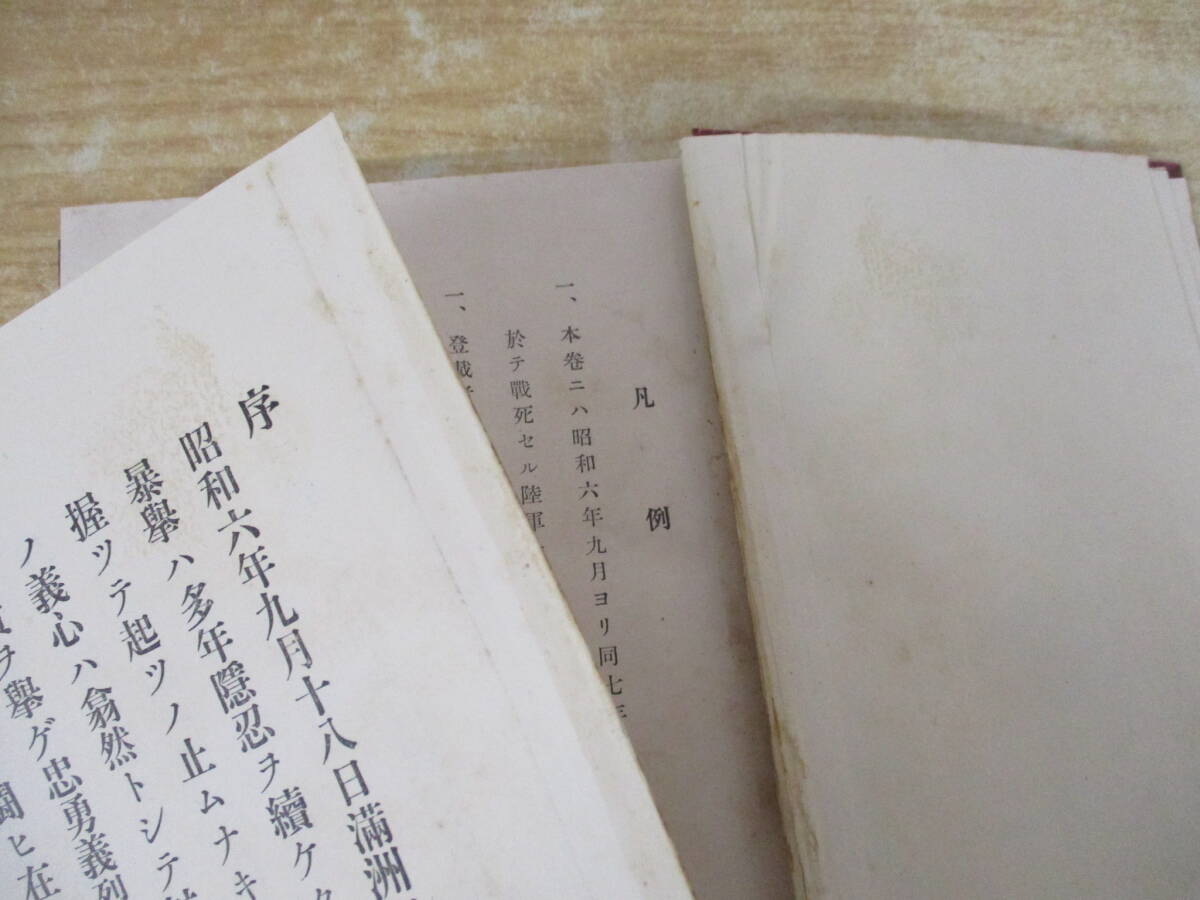 序
昭和六年九月十八日滿洲
暴擧ハ多年隱忍ヲ續ケ
握ツテ起ツノ止ムナキ
ノ義心ハ翕然トシテ
ヲ擧ゲ忠勇義列
ヒ在
凡例
一、本卷ニハ昭和六年九月ヨリ同七年
於テ戰死セル陸軍
一、登載